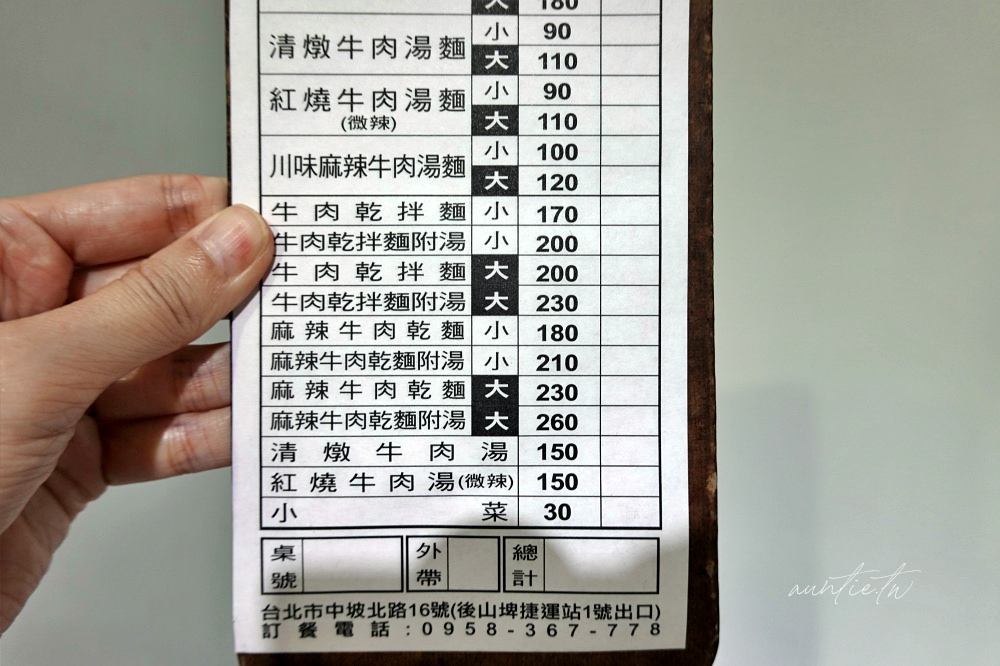 大 180
清燉牛肉湯麵 小 90
大 110
紅燒牛肉湯麵 小 90
(微辣) 大 110
川味麻辣牛肉湯麵 小 100
大 120
牛肉乾拌麵 小 170
牛肉乾拌麵附湯 小 200
牛肉乾拌麵 大 200
牛肉乾拌麵附湯 大 230
麻辣牛肉乾麵 小 180
麻辣牛肉乾麵附湯 小 210
麻辣牛肉乾麵 大 230
麻辣牛肉乾麵附湯 大 260
清燉牛肉湯 150
紅燒牛肉湯(微辣) 150
小菜 30
桌號 外帶 總計
台北市中坡北路16號(後山埤捷運站1號出口)
訂餐電話:0958-367-778
auntie.tw